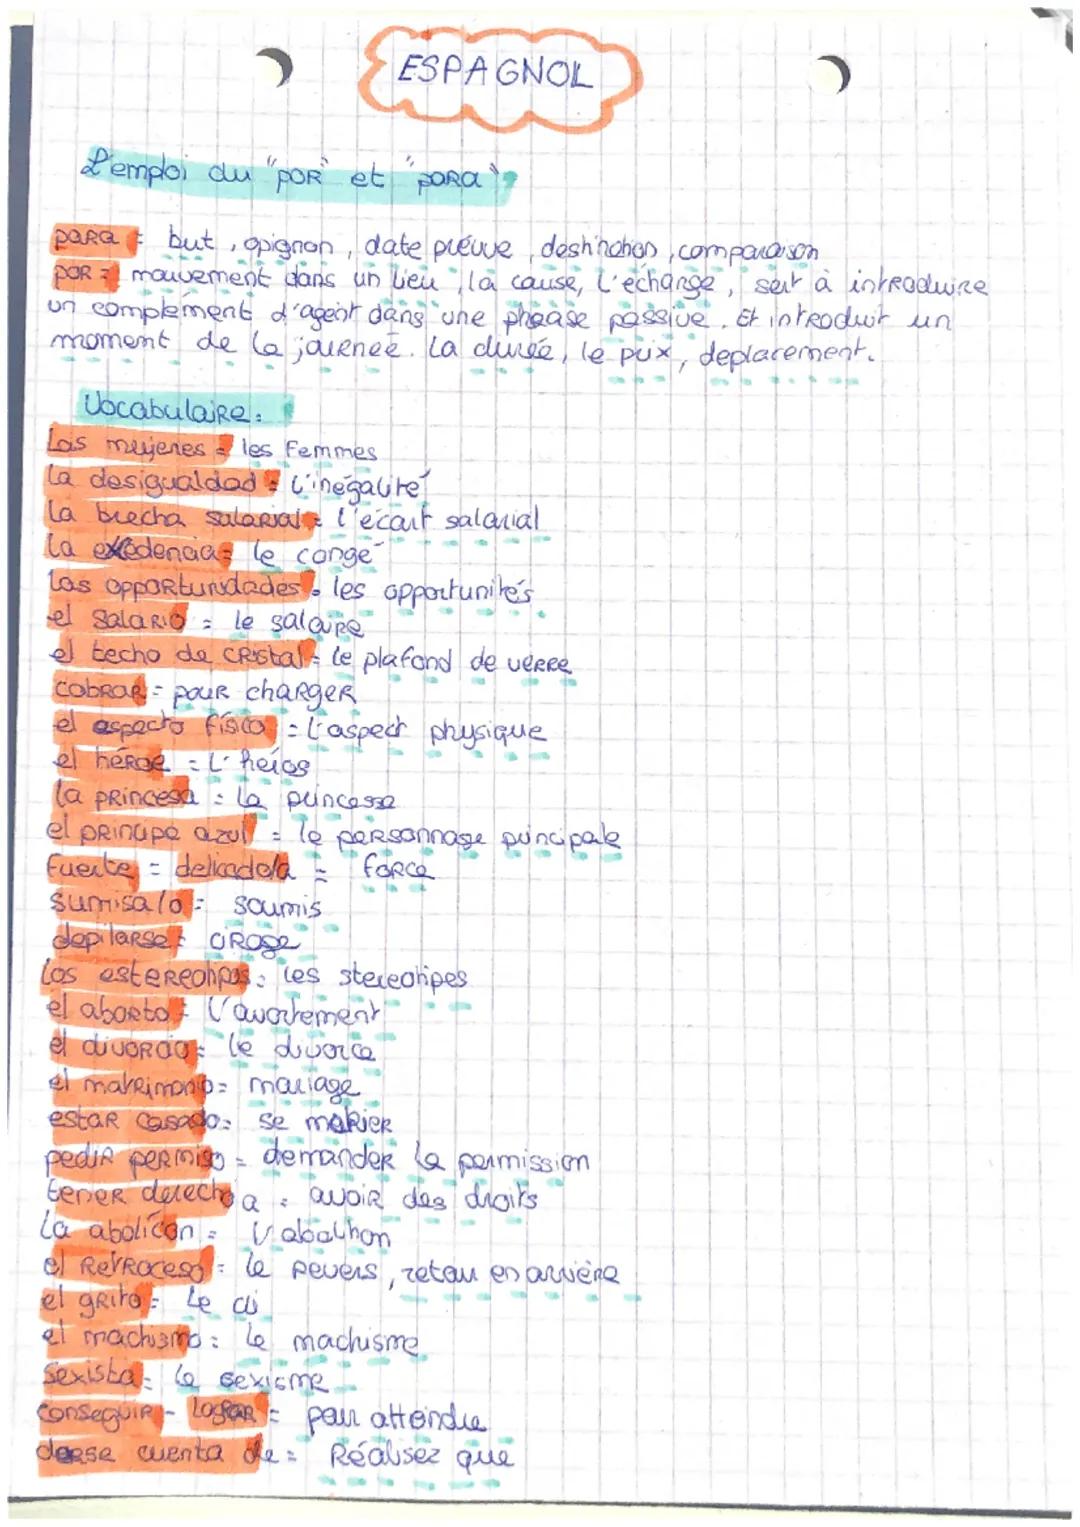 ESPAGNOL
L'emploi du "por" et "para"
para = but, opignon, date prévue, destination, comparaison
por = mouvement dans un lieu, la cause, l'échange, sert à introduire
un complément d'agent dans une phrase passive. Et introduit un
moment de la journée. La durée, le prix, deplacement.
Vocabulaire:
Las mujenes = les femmes
La desigualdad = l'inégalité
La brecha salarial = l'écart salarial
La exedencia = le congé
Las opportunidades = les opportunités
el salario = le salaire
el techo de cristal = le plafond de verre
cobrar = pour charger
el aspecto físico = l'aspect physique
el héroe = l'héros
la princesa = la princesse
el principe azul = le personnage principale
Fuerte = = force
sumisa/o = soumis
depilarse = cirage
los estereotipos = les stereotipes
el aborto = l'avortement
el divorcio = le divorce
el matrimonio = mariage
estar casado = se marier
pedir permiso = demander la permission
tener derecho a = avoir des droits
la abolicon = l'abolition
el retroceso = le revers, retour en arrière
el grito = le cri
el machismo = le machisme
Sexista = le sexisme
conseguir - lograr = pour attendre
darse cuenta de = Réalisez que